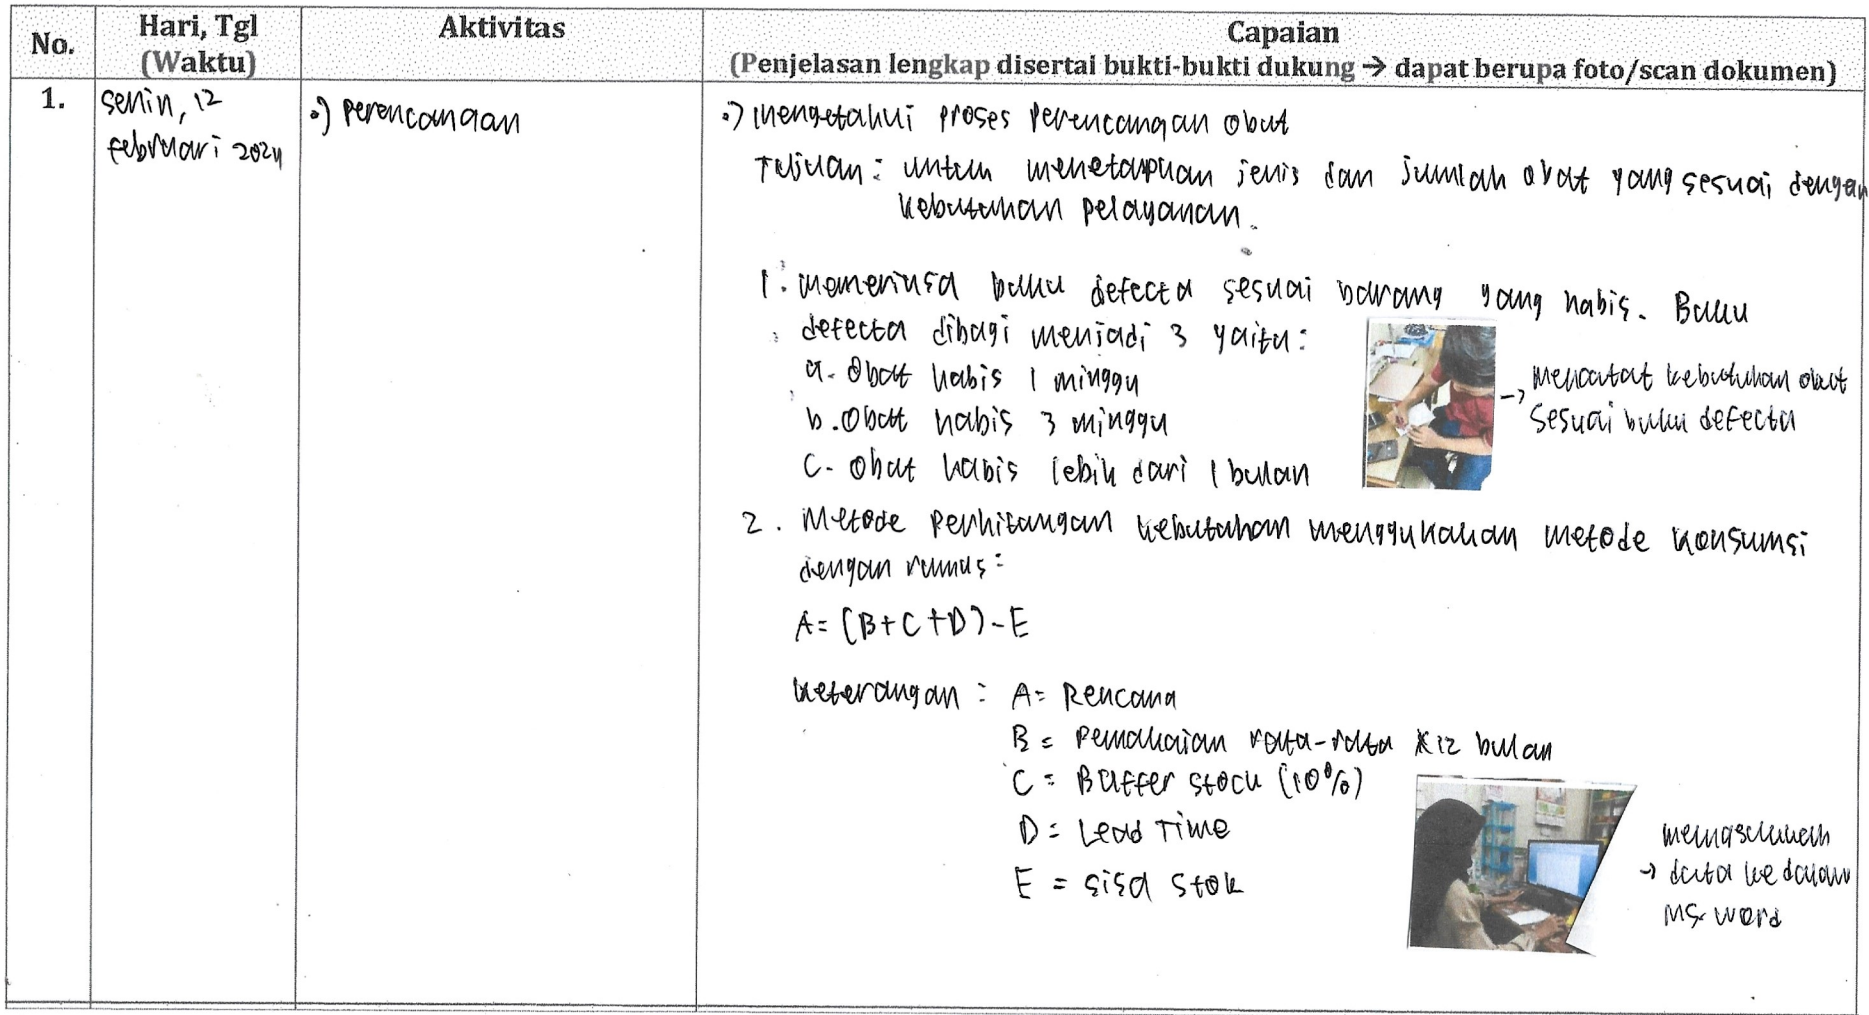 No.
Hari, Tgl
(Waktu)
Aktivitas
Capaian
(Penjelasan lengkap disertai bukti-bukti dukung → dapat berupa foto/scan dokumen)
1.
senin, 12
februari 2024
•) perencanaan
•) mengetahui proses perencangan obat
Tujuan: untuk menetapkan jenis dan jumlah obat yang sesuai dengan
kebutuhan pelayanan.
1. memeriksa buku defecta sesuai barang yang habis. Buku
defecta dibagi menjadi 3 yaitu:
a. Obat habis 1 minggu
b. Obat habis 3 minggu
c. Obat habis lebih dari 1 bulan
→ mencatat kebutuhan obat
sesuai buku defecta
2. Metode perhitungan kebutuhan menggunakan metode konsumsi
dengan rumus:
A= (B+C+D)-E
keterangan : A= Rencana
B = pemakaian rata-rata x 12 bulan
C = Buffer stock (10%)
D = Lead Time
E = sisa stok
memasukkan
→ data ke dalam
MS. word